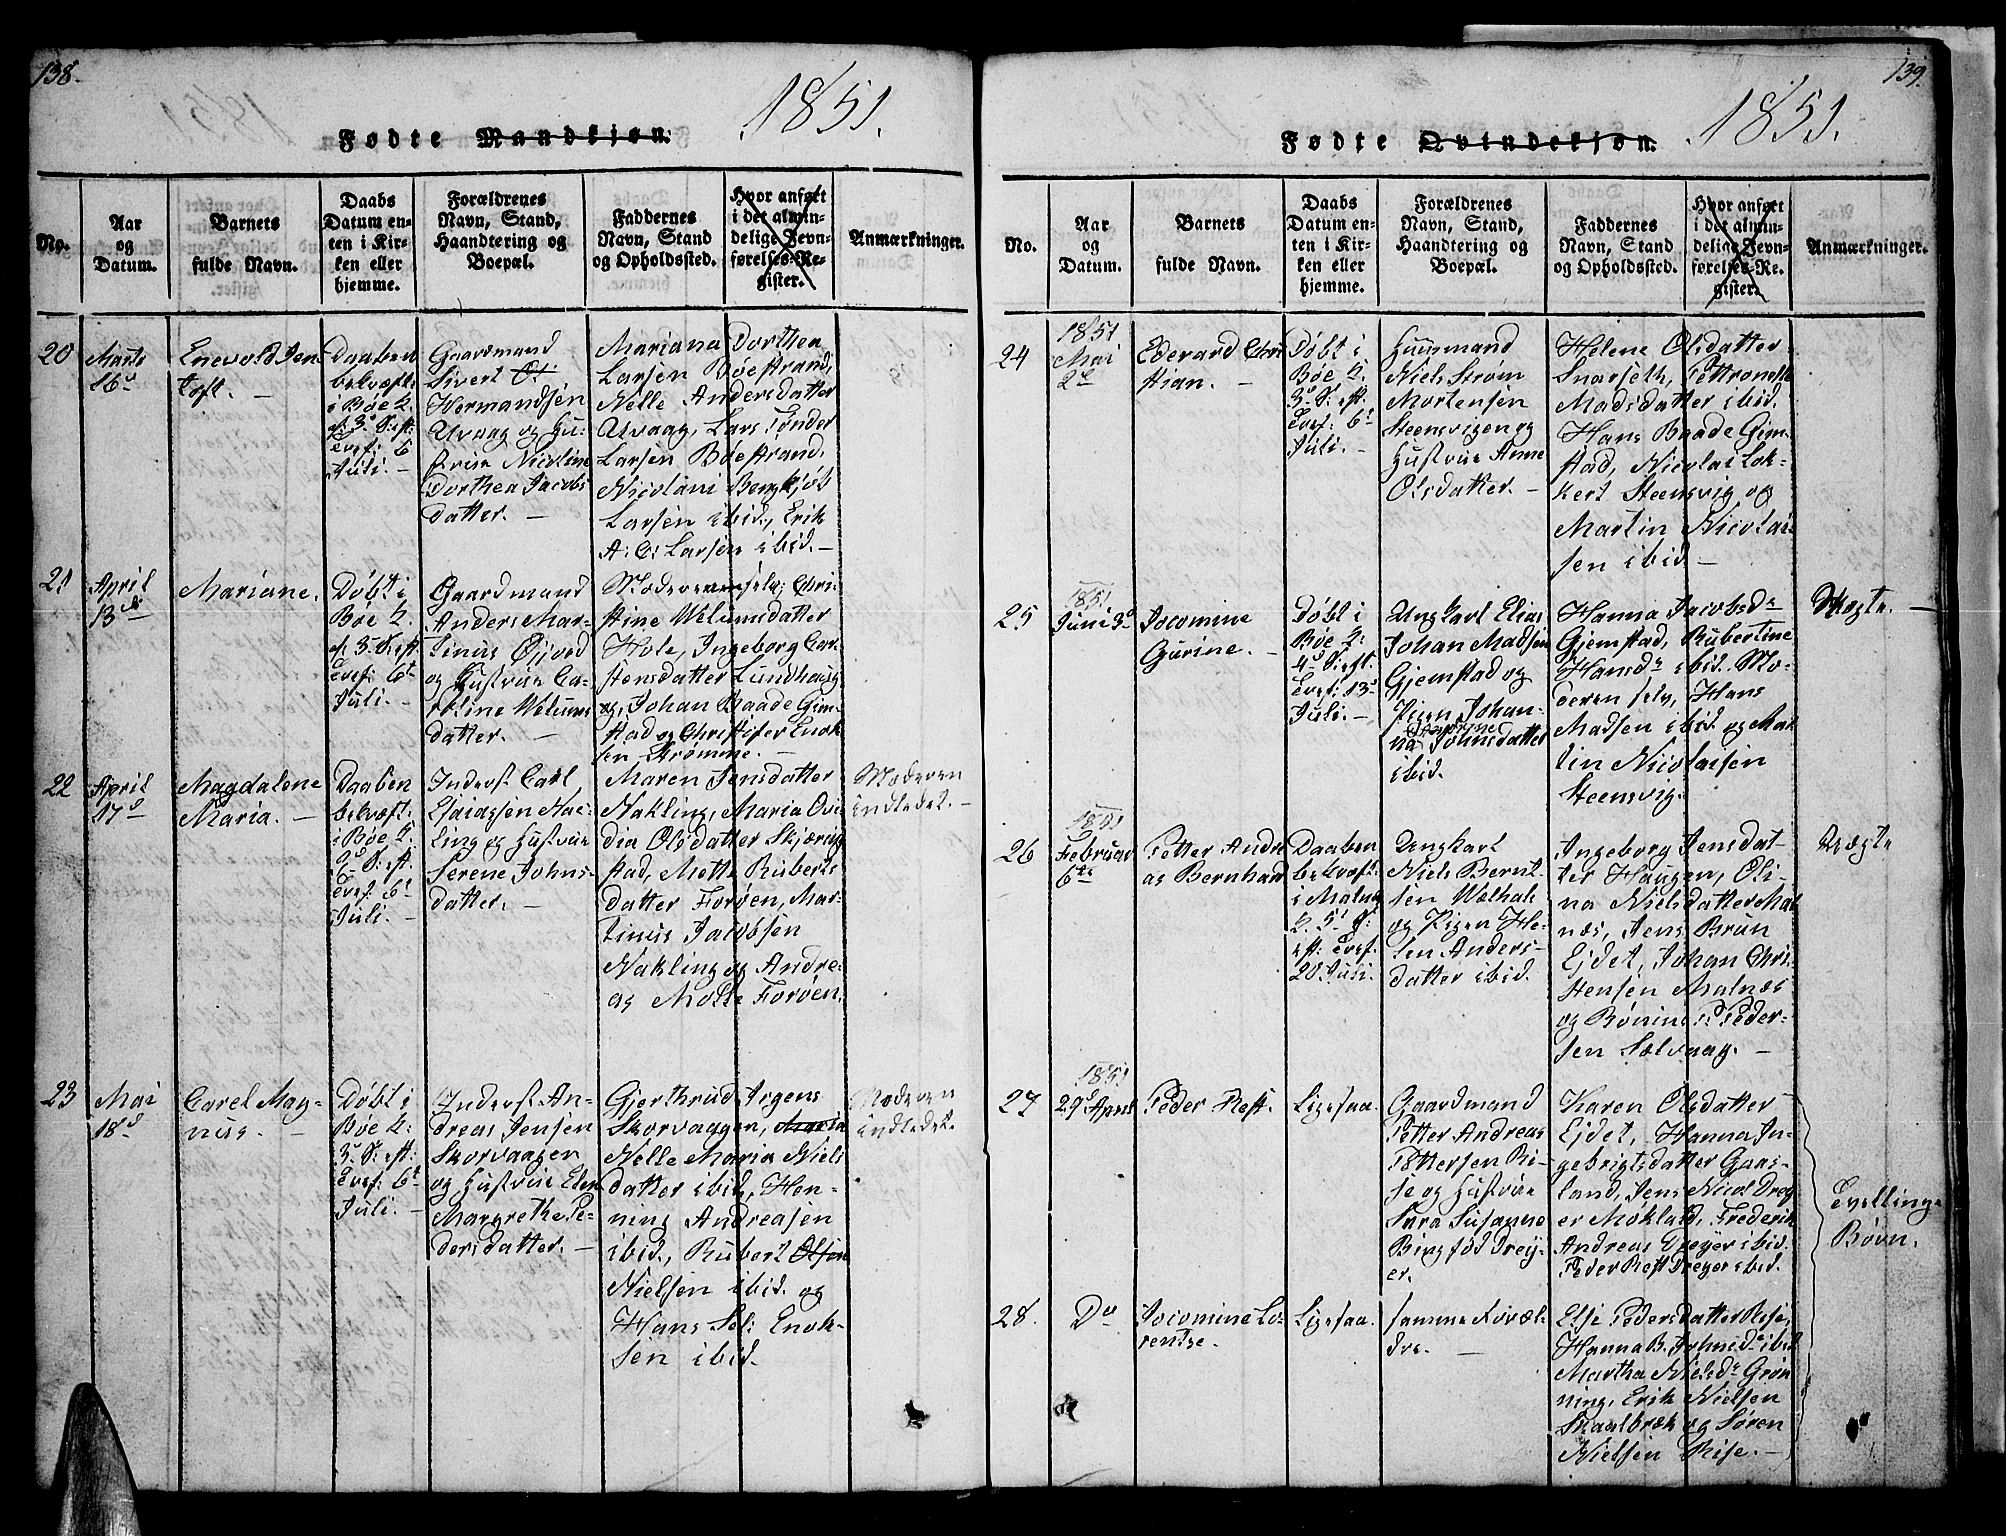 138.
Fødte Mandkjøn. 1851.
No.
Aar
og
Datum.
Barnets
fulde Navn.
Daabs
Datum en-
ten i Kir-
ken eller
hjemme.
Forældrenes
Navn, Stand,
Haandtering og
Boepæl.
Faddernes
Navn, Stand
og Opholdssted.
Hvor anført
i det almin-
delige Jevn-
førelses-Re-
gister.
Anmærkninger.
20
Marts
16d
Enevold Jen-
toft. —
Daaben
bekræft:
i Bøe K.
af 3. S. eft:
Evef: 6
Juli. —
Gaardmand
Sivert Ol:
Hermandsen
Alvaag og Hu-
strue Nicoline
Dorthea Jacobs
datter. —
Mariana Dorthea
Larsen Bøestrand,
Nelle Andersdatter
Alvaag, Lars Tønder
Larsen Bøestrand,
Nicolani Bengkjøt
Larsen ibid, Erik
A: C: Larsen ibid. —
21
April
13de
Mariane.
Døbt i
Bøe K.
af 3. S. eft
Evef: 6t
Juli. —
Gaardmand
Anders Mar-
tinus Øjord
og Hustrue Ca-
roline Velums
datter. —
Moderen selv, Chri-
stine Welumsdatter
Hole, Ingeborg Car-
stensdatter Lundhaug
og Johan Baade Gim-
stad og Christofer Enok-
sen Strømme. —
22
April
17d
Magdalene
Maria. —
Daaben
bekræft:
i Bøe K.
3d S. eft.
Evef. 6t
Juli. —
Inderst Carl
Esaiassen Nac-
ling og Hustrue
Serene Johns-
datter. —
Maren Jensdatter
Nakling, Maria Ovi-
dia Olsdatter Skjæring
stad, Mette Ruberts
datter Forøen, Mar-
tinus Jacobsen
Nakling og Andre-
as Molte Forøen.
Moderen
indledet. —
23
Mai
18d
Carel Mag-
nus. —
Døbt i
Bøe K:
3d S. eft:
Evef: 6t
Juli. —
Inderst An-
dreas Jensen
Skorvaagen
og Hustrue Elen
Margrethe Pe-
dersdatter. —
Gjerthrud Jrgens
Skorvaagen, Maria
Nelle Maria Niels
datter ibid, Hen-
ning Andreasen
ibid, Rubert Olsen
Nielsen ibid. og
Hans Sel: Enok-
sen ibid.
Moderen
indledet.
139.
Fødte Qvindekjøn. 1851.
No.
Aar
og
Datum.
Barnets
fulde Navn.
Daabs
Datum en-
ten i Kir-
ken eller
hjemme.
Forældrenes
Navn, Stand,
Haandtering og
Boepæl.
Faddernes
Navn, Stand
og Opholdssted.
Hvor anført
i det almin-
delige Jevn-
førelses-Re-
gister.
Anmærkninger.
24
1851
Mai
2de
Ederard Chri
stian. —
Døbt i
Bøe K.
3d S: eft.
Evef: 6t
Juli. —
Huusmand
Niels Strøm
Mortensen
Steensvigen og
Hustrue Anne
Olsdatter. —
Helene Olsdatter
Snarseth, Pettronelle
Madsdatter ibid.
Hans Baade Gim-
stad, Nicolai Lok-
kert Steensvig og
Martin Nicolai-
sen ibid —
25
1851
Juni 3d
Jocomine
Gurine. —
Døbt i
Bøe K:
4d S: eft.
Evef: 13d
Juli. —
Ungkarl Elias
Johan Madsen
Gjemstad og
Pigen Johan-
na Johnsdatter
ibid.
Hanna Jacobsdr
Gjemstad, Rubertine
Hansdr ibid. Mo-
deren selv, Hans
Madsen ibid og Mar-
tin Nicolaisen
Steensvig.
Uægte. —
26
1851
Februar
6te
Petter Andre
as Bernhard
Daaben
bekræft:
i Malnæs
K. 5t S:
eft: Evef.
20. Juli.
Ungkarl
Niels Bernt-
sen Walhal
og Pigen He-
len Anders-
datter ibid.
Ingeborg Jensdat-
ter Haugen, Oli-
na Nielsdatter Mal
næs, Jens Bruun
Ejdet, Johan Chri-
stensen Malnæs
og Røning P. Peder-
sen Sælvaag. —
Uægte
27
1851
29d April
Peder Rest.
Ligesaa.
Gaardmand
Petter Andreas
Pettersen Ri-
se og Hustrue
Sara Susanne
Ringfod Drey-
er.
Karen Olsdatter
Ejdet, Hanna In-
gebrigtsdatter Gaas-
land, Jens Nicol Drey
er Møklad, Frederik
Andreas Dreyer ibid.
Peder Rest Dreyer ibid.
Tvellinge
Børn.
28.
Do
Jocomine Lo-
rentse.
Ligesaa.
samme Foræl-
dre. —
Else Pedersdatter Rise,
Hanna B. Johnsdr ibid
Martha Nielsdr Grøn-
ning, Erik Nielsen
Skaalbræk og Søren
Nielsen Rise. —